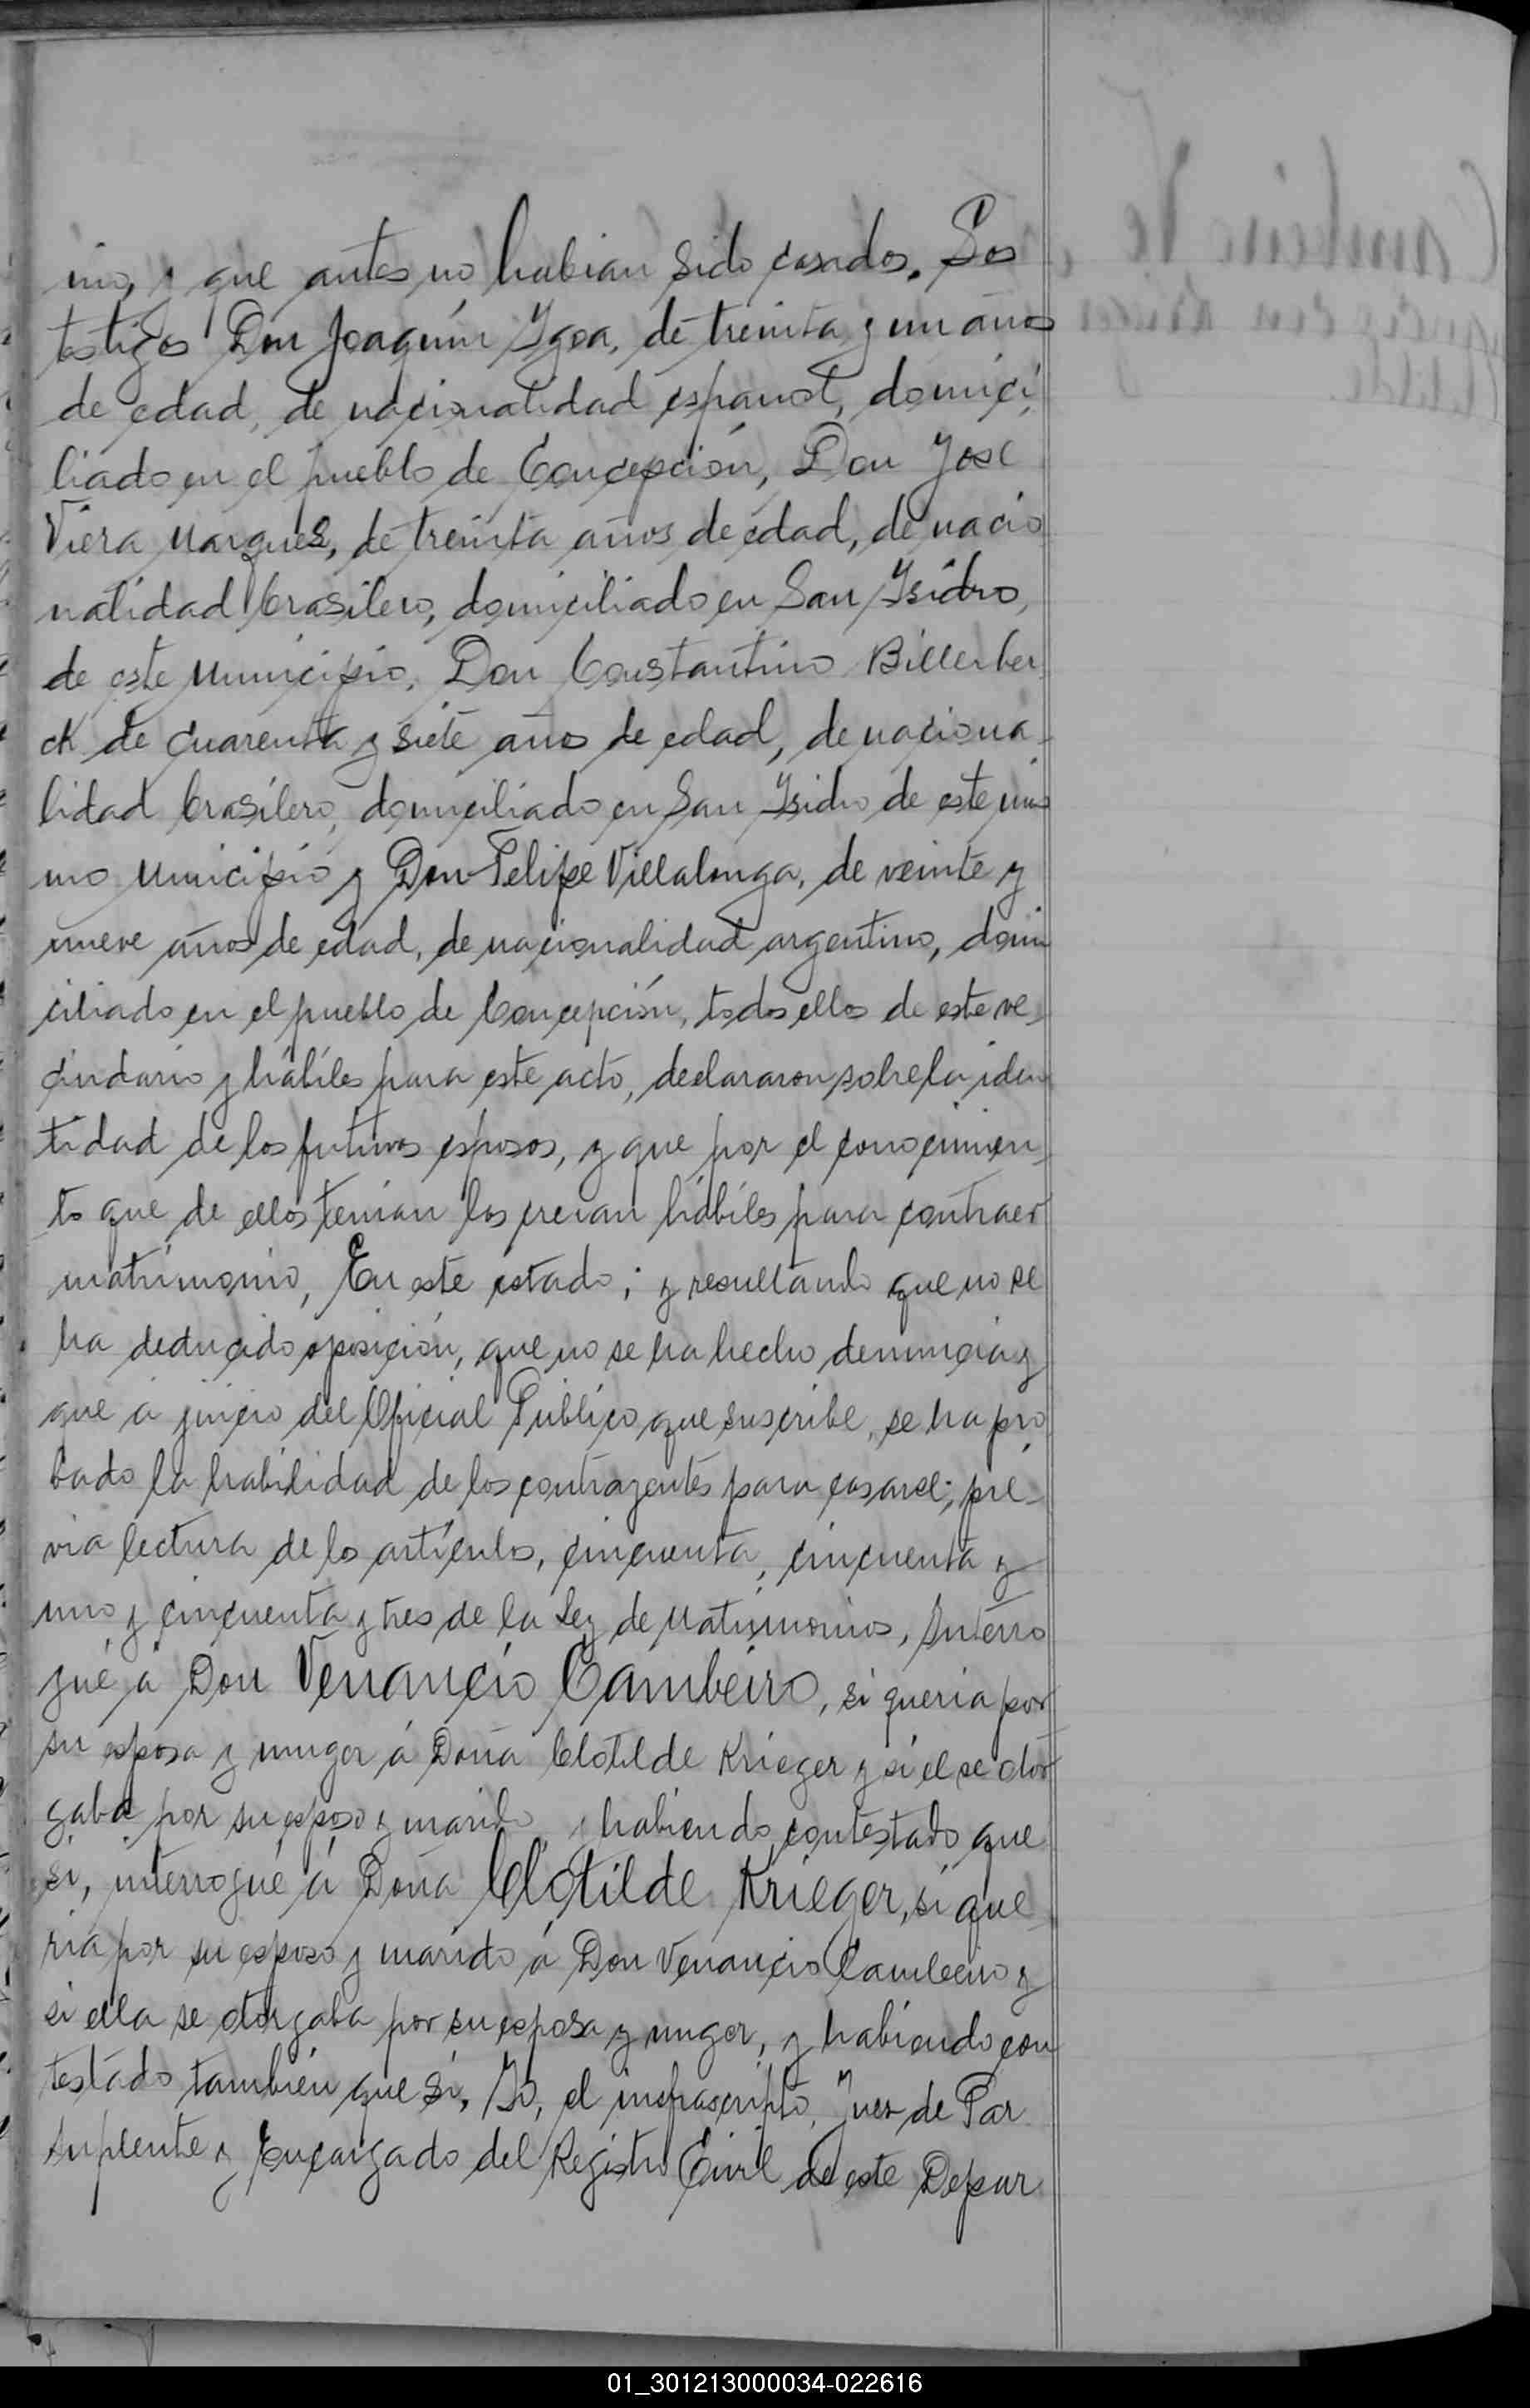 nio, y que antes no habian sido casados. Los
testigos Don Joaquín Ygoa, de treinta y un años
de edad, de nacionalidad español, domici
liado en el pueblo de Concepción, Don José
Viera Marques, de treinta años de edad, de nacio
nalidad brasilero, domiciliado en San Ysidro,
de este Municipio, Don Constantino Billerbe
ck de cuarenta y siete años de edad, de naciona-
lidad brasilero, domiciliado en San Ysidro de este mis
mo Municipio y Don Felipe Villalonga, de veinte y
nueve años de edad, de nacionalidad argentino, domi
ciliado en el pueblo de Concepción, todos ellos de este ve-
cindario y hábiles para este acto, declararon sobre la iden
tidad de los futuros esposos, y que por el conocimien
to que de ellos tenian los creian hábiles para contraer
matrimonio, En este estado; y resultando que no se
ha deducido oposición, que no se ha hecho denuncia y
que á juicio del Oficial Público que suscribe, se ha pro
bado la habilidad de los contrayentes para casarse; pré-
via lectura de los artículos, cincuenta, cincuenta y
uno y cincuenta y tres de la Ley de Matrimonios, Interro
gué á Don Venancio Cambeiro, si queria por
su esposa y muger á Doña Clotilde Krieger y si él se otor
gaba por su esposo y marido y habiendo contestado que
si, interrogué á Doña Clotilde Krieger, si que
ria por su esposo y marido á Don Venancio Cambeiro y
si ella se otorgaba por su esposa y muger, y habiendo con
testado también que si, Yo, el infrascripto, Juez de Paz
suplente y Encargado del Registro Civil de este Depar
01_301213000034-022616